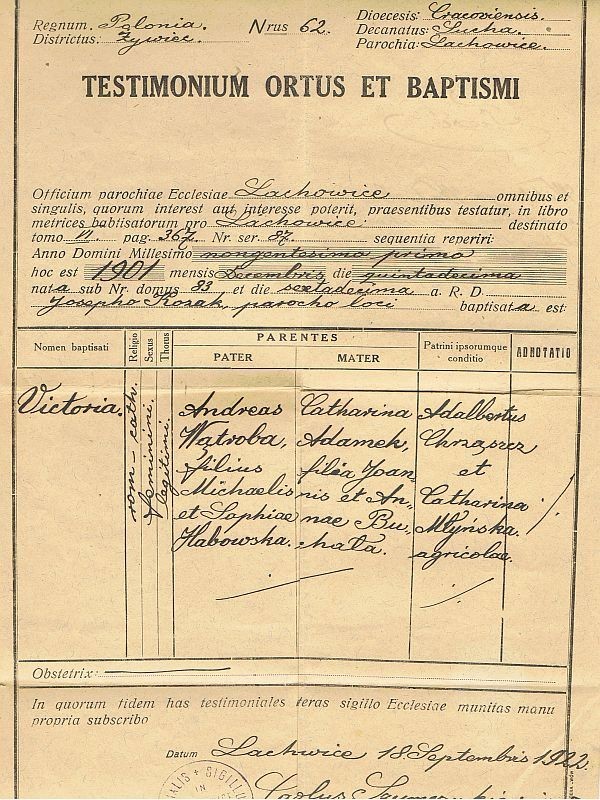 Regnum. Polonia.
Districtus: Żywiec.
Nrus 62.
Dioecesis: Cracoviensis.
Decanatus: Sucha.
Parochia: Lachowice.
TESTIMONIUM ORTUS ET BAPTISMI
Officium parochiae Ecclesiae Lachowice omnibus et
singulis, quorum interest aut interesse poterit, praesentibus testatur, in libro
metrices babtisatorum pro Lachowice destinato
tomo III pag. 367 Nr. ser. 87 sequentia reperiri:
Anno Domini Millesimo nongentesimo primo
hoc est 1901 mensis Decembris die quintadecima
nata sub Nr. domus 83, et die sextadecima a. R. D.
Josepho Kozak, parocho loci baptisata est:
Nomen baptisati
Religio
Sexus
Thorus
PARENTES
PATER
MATER
Patrini ipsorumque
conditio
ADNOTATIO
Victoria.
rom-cath.
feminini.
legitimi.
Andreas
Wątroba,
filius
Michaelis
et Sophiae
Habowska.
Catharina
Adamek,
filia Joan-
nis et An-
nae Bu-
kała.
Adalbertus
Chrząszcz
et
Catharina
Młyńska.
agricolae.
Obstetrix:
In quorum fidem has testimoniales teras sigillo Ecclesiae munitas manu
propria subscribo
Datum Lachwice 18 Septembris 1922.
ALIS + SIGILLU
IN
Carolus